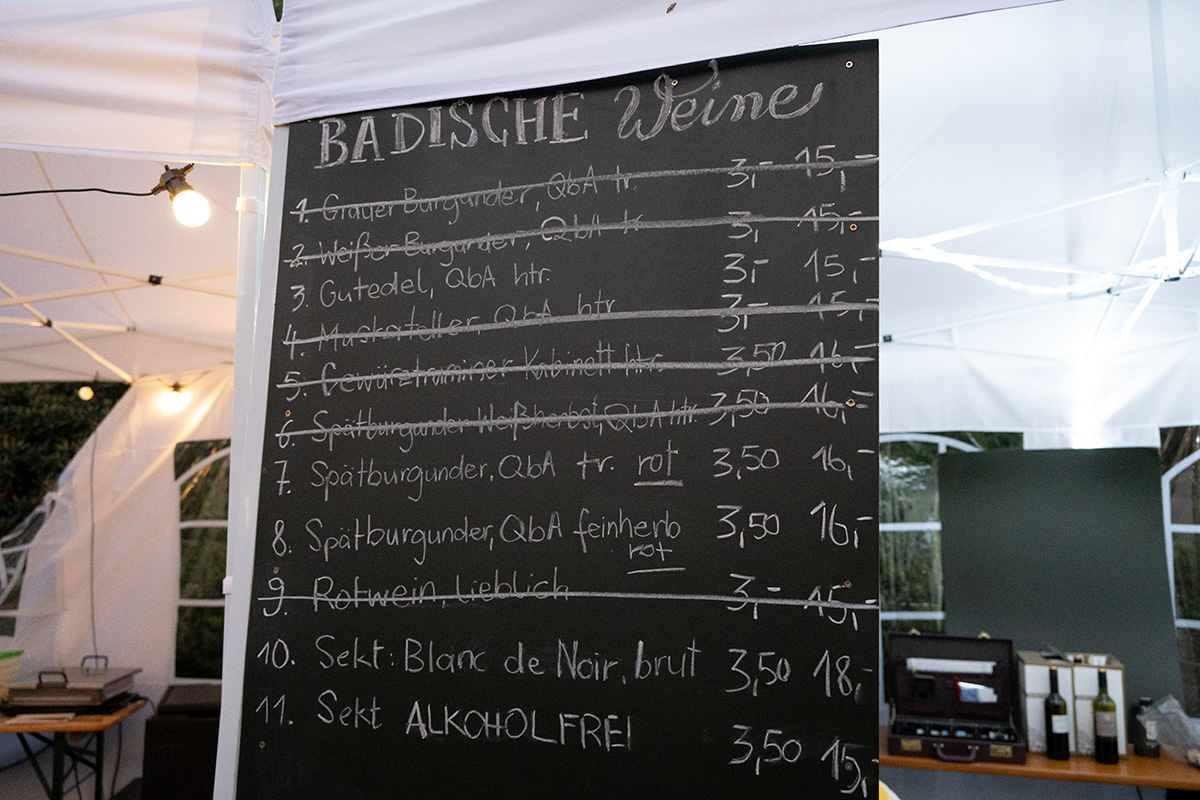 BADISCHE Weine
1. Grauer Burgunder, QbA tr. 3,- 15,-
2. Weißer Burgunder, QbA tr. 3,- 15,-
3. Gutedel, QbA htr. 3,- 15,-
4. Muskateller, QbA htr 3,- 15,-
5. Gewürztraminer Kabinett htr. 3,50 16,-
6. Spätburgunder Weißherbst, QbA htr. 3,50 16,-
7. Spätburgunder, QbA tr. rot 3,50 16,-
8. Spätburgunder, QbA feinherb 3,50 16,-
rot
9. Rotwein, Lieblich 3,- 15,-
10. Sekt: Blanc de Noir, brut 3,50 18,-
11. Sekt ALKOHOLFREI 3,50 15,-